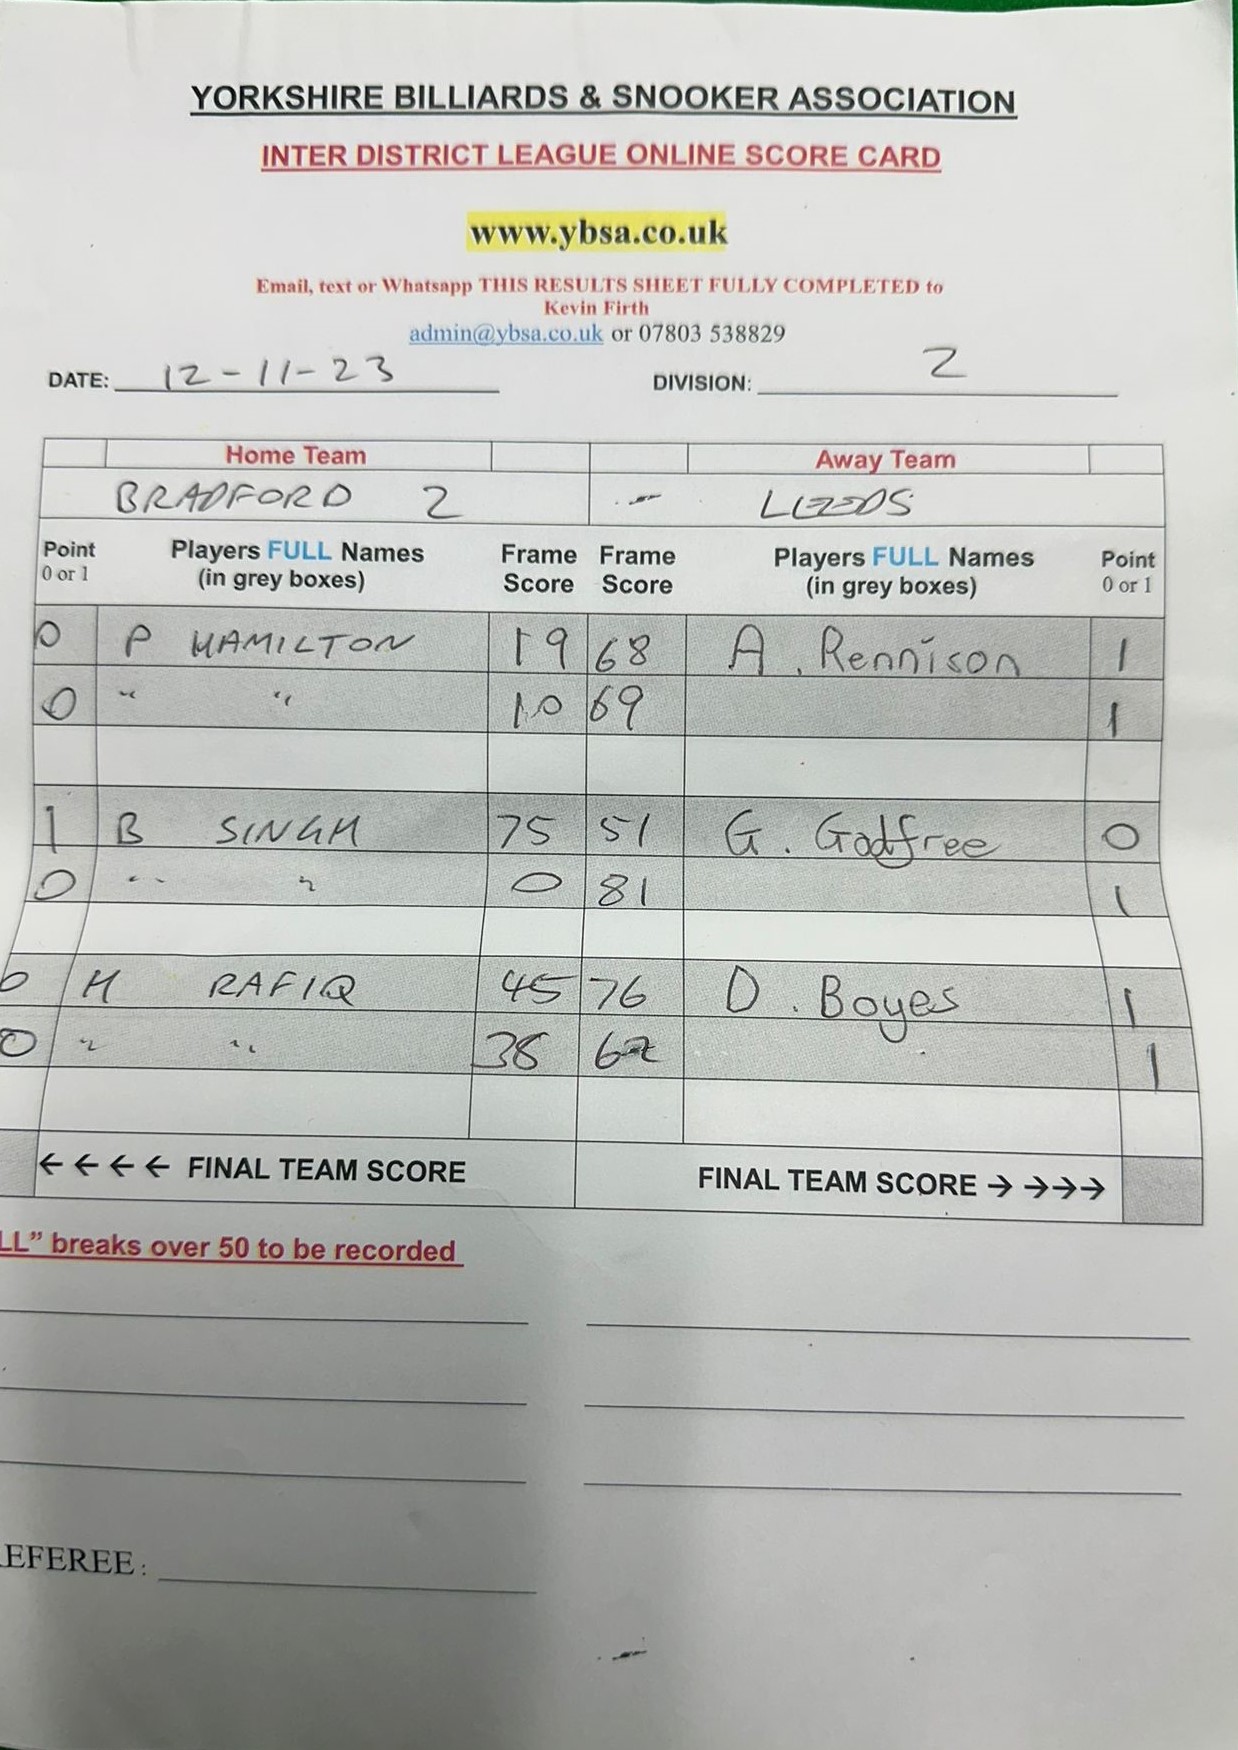 YORKSHIRE BILLIARDS & SNOOKER ASSOCIATION
INTER DISTRICT LEAGUE ONLINE SCORE CARD
www.ybsa.co.uk
Email, text or Whatsapp THIS RESULTS SHEET FULLY COMPLETED to
Kevin Firth
admin@ybsa.co.uk or 07803 538829
DATE: 12-11-23 DIVISION: 2
Home Team Away Team
BRADFORD 2 - LEEDS
Point 0 or 1 Players FULL Names (in grey boxes) Frame Score Frame Score Players FULL Names (in grey boxes) Point 0 or 1
0 P HAMILTON 19 68 A. Rennison 1
0 " " 10 69 1
1 B SINGH 75 51 G. Godfree 0
0 " " 0 81 1
0 M RAFIQ 45 76 D. Boyes 1
0 " " 38 62 1
←←←← FINAL TEAM SCORE FINAL TEAM SCORE →→→→
LL" breaks over 50 to be recorded
EFEREE: